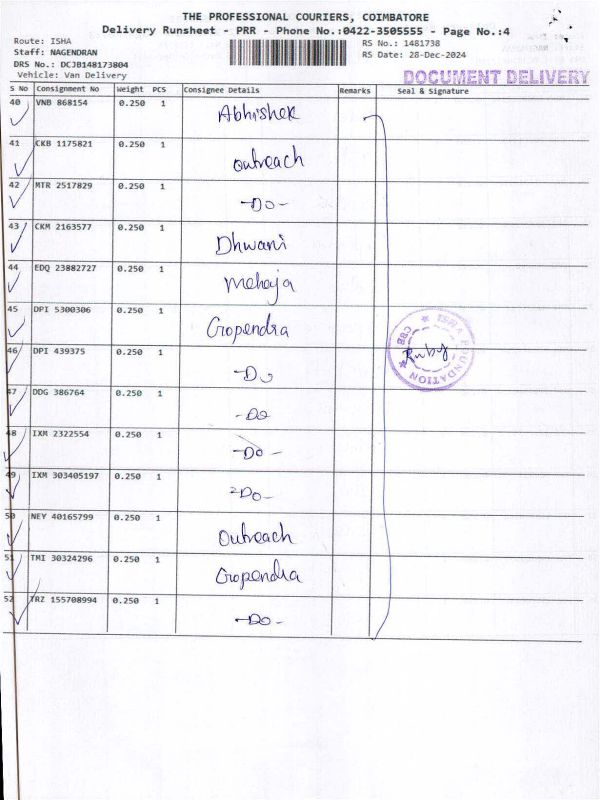 THE PROFESSIONAL COURIERS, COIMBATORE
Delivery Runsheet - PRR - Phone No.:0422-3505555 - Page No.:4
Route: ISHA
Staff: NAGENDRAN
DRS No.: DCJB148173804
Vehicle: Van Delivery
RS No.: 1481738
RS Date: 28-Dec-2024
DOCUMENT DELIVERY
S No Consignment No Weight PCS Consignee Details Remarks Seal & Signature
40 VNB 868154 0.250 1 Abhishek
41 CKB 1175821 0.250 1 Outreach
42 MTR 2517829 0.250 1 -Do-
43 CKM 2163577 0.250 1 Dhwani
44 EDQ 23882727 0.250 1
45 DPI 5300306 0.250 1 Gopendra
46 DPI 439375 0.250 1 -Do
47 DDG 386764 0.250 1 -Do
48 IXM 2322554 0.250 1 -Do-
49 IXM 303405197 0.250 1 -Do-
50 NEY 40165799 0.250 1 Outreach
51 TMI 30324296 0.250 1 Gopendra
52 TRZ 155708994 0.250 1 -Do-
ISHA FOUNDATION
CBE
Ruby